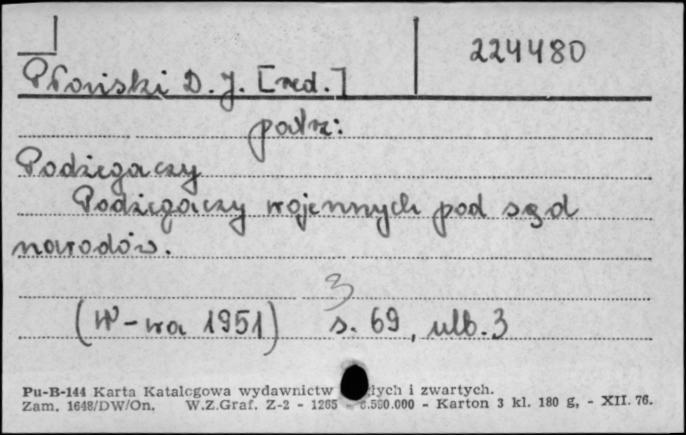 224480
Płoński D. J. [red.]
patrz:
Podżegaczy
Podżegaczy wojennych pod sąd
narodów.
3
(W-wa 1951) s. 69, ulb. 3
Pu-B-144 Karta Katalogowa wydawnictw i zwartych.
Zam. 1648/DW/On. W.Z.Graf. Z-2 - 1265 - Karton 3 kl. 180 g, - XII. 76.